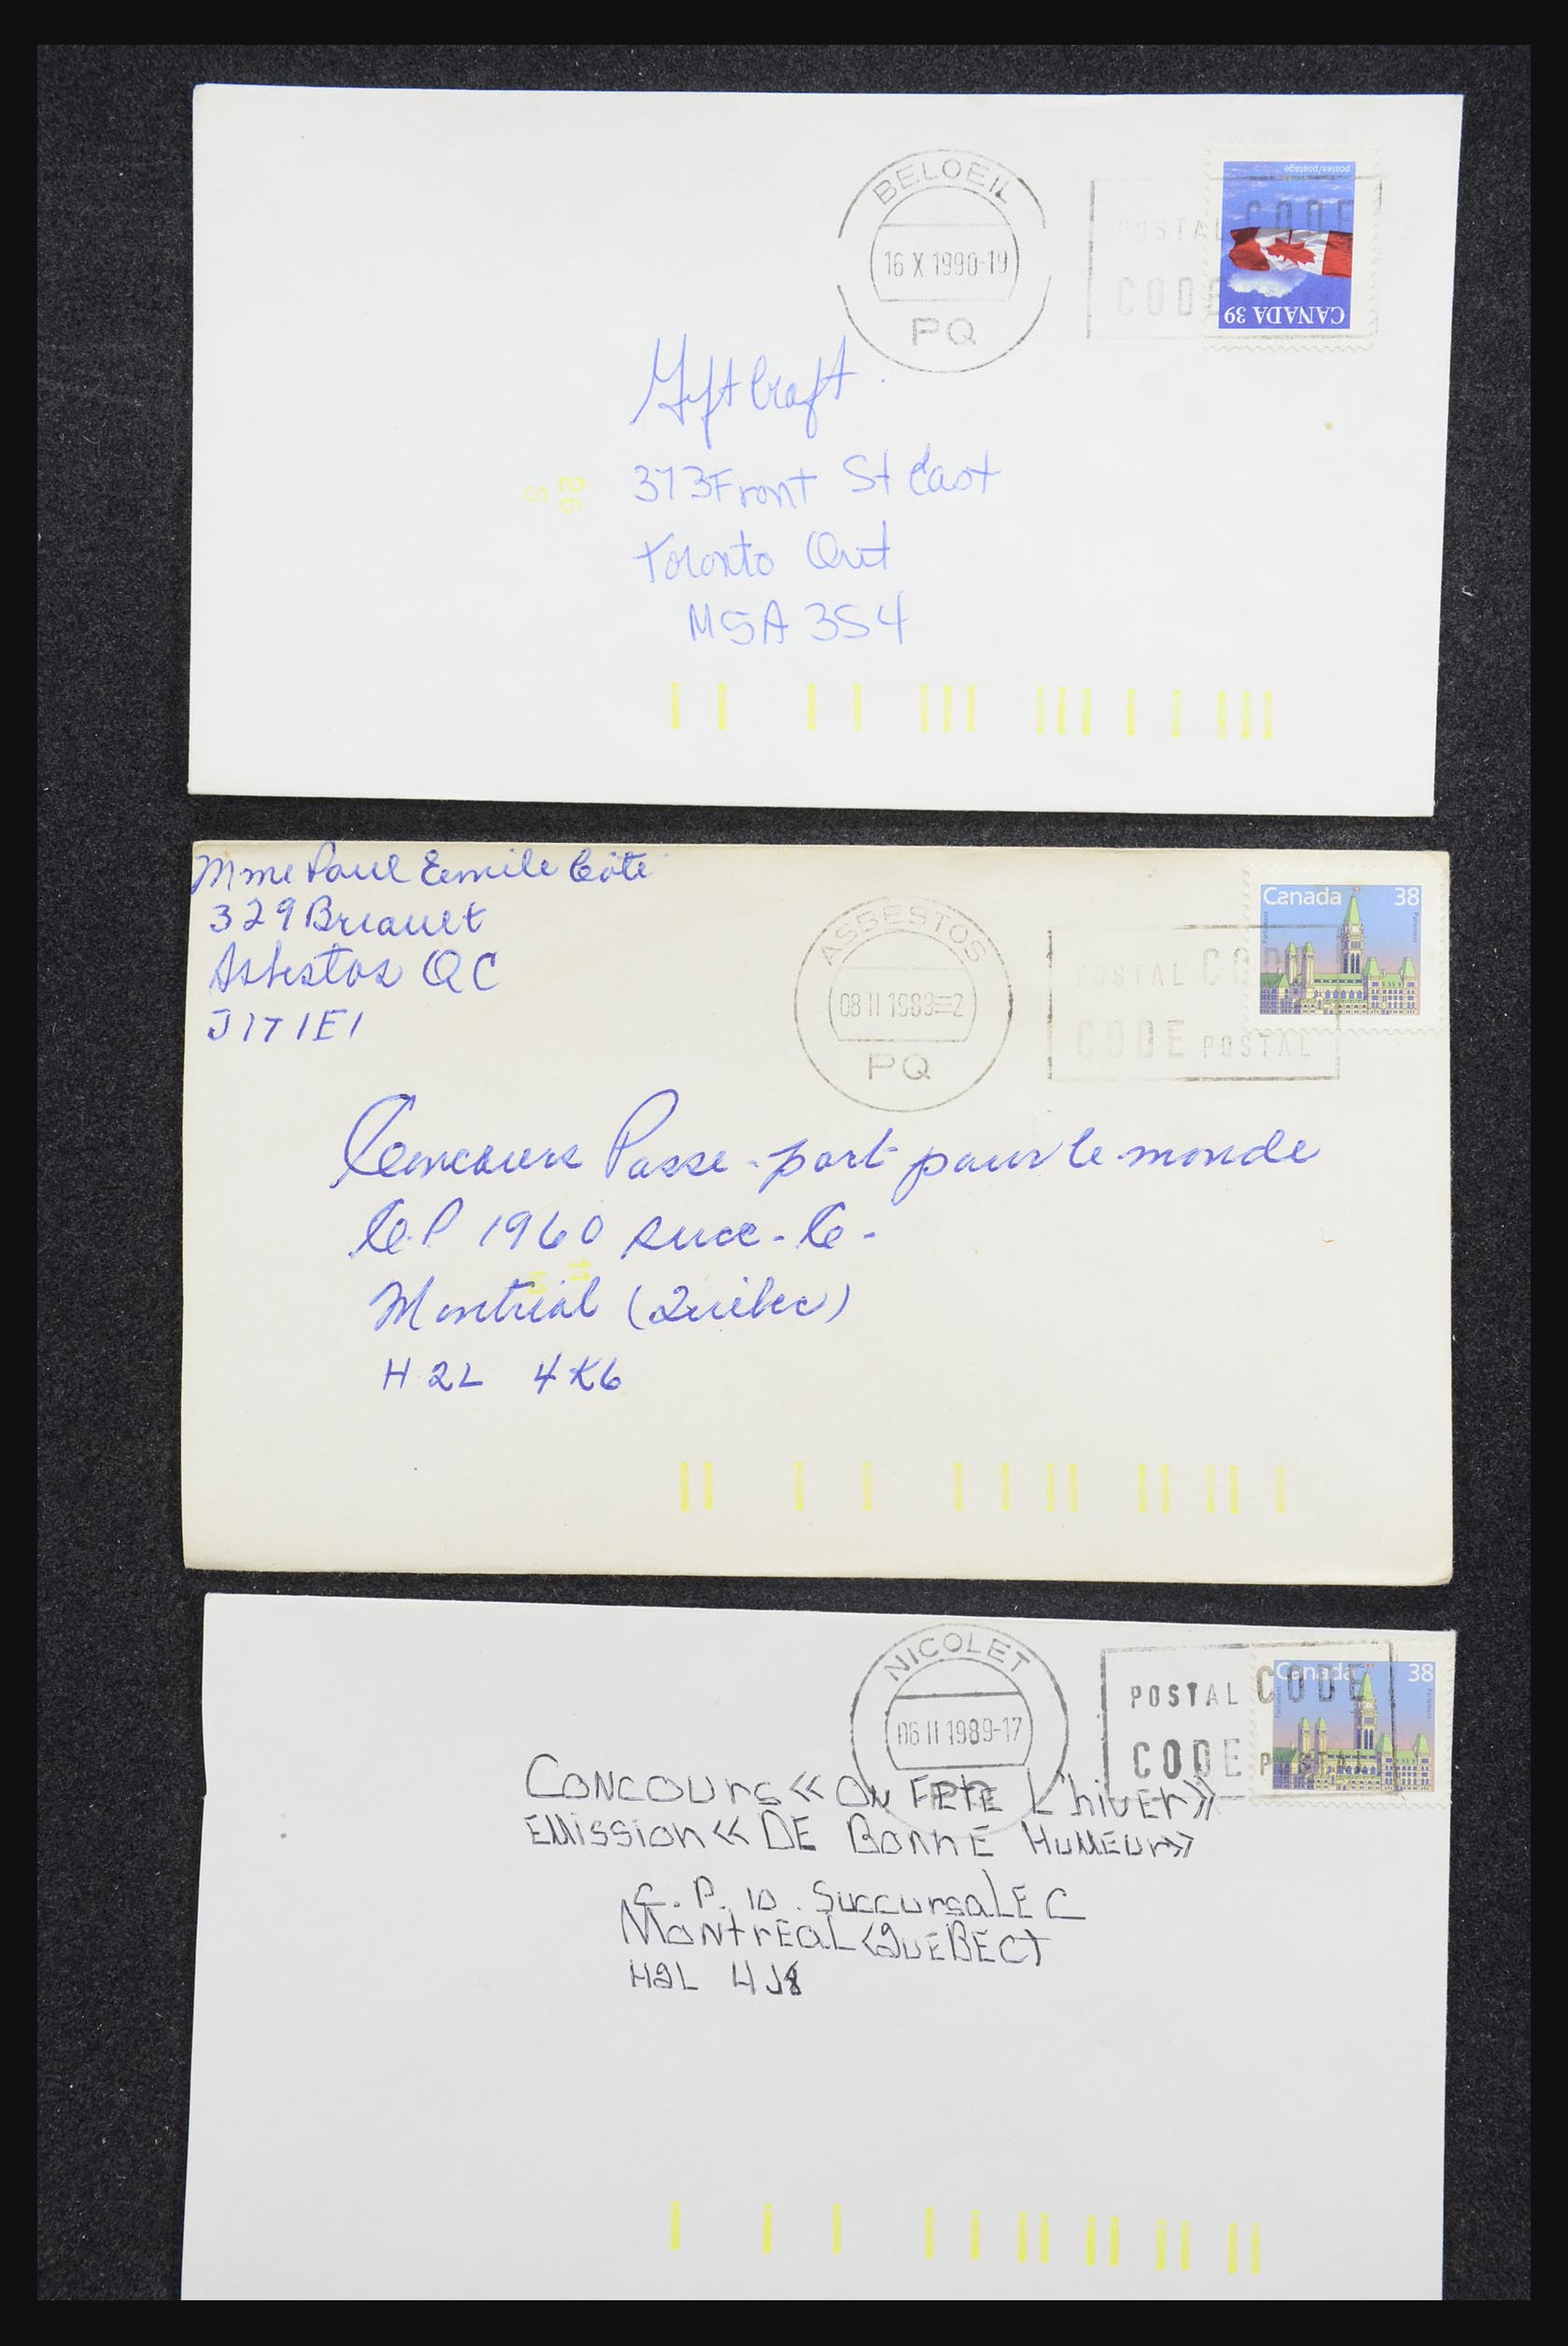 BELOEIL
16 X 1990-19
PQ
POSTAL CODE
CODE
postes/postage
CANADA 39
Gift Craft
373 Front St East
Toronto Ont
M5A 3S4
26
S
Mme Paul Emile Côté
329 Briault
Asbestos QC
J1T 1E1
ASBESTOS
08 II 1989
PQ
POSTAL CODE
CODE POSTAL
Canada 38
Concours Passe-port pour le monde
C.P 1960 succ-C-
Montréal (Québec)
H2L 4K6
11
NICOLET
06 II 1989-17
PQ
POSTAL CODE
CODE POSTAL
Canada 38
CONCOURS « ON FÊTE L'hiVEr »
EMission « DE BONNE HUMEUr »
C.P. 10. SuccursaLE C
MontrEaL (QuÉBEC)
H2L 4J8